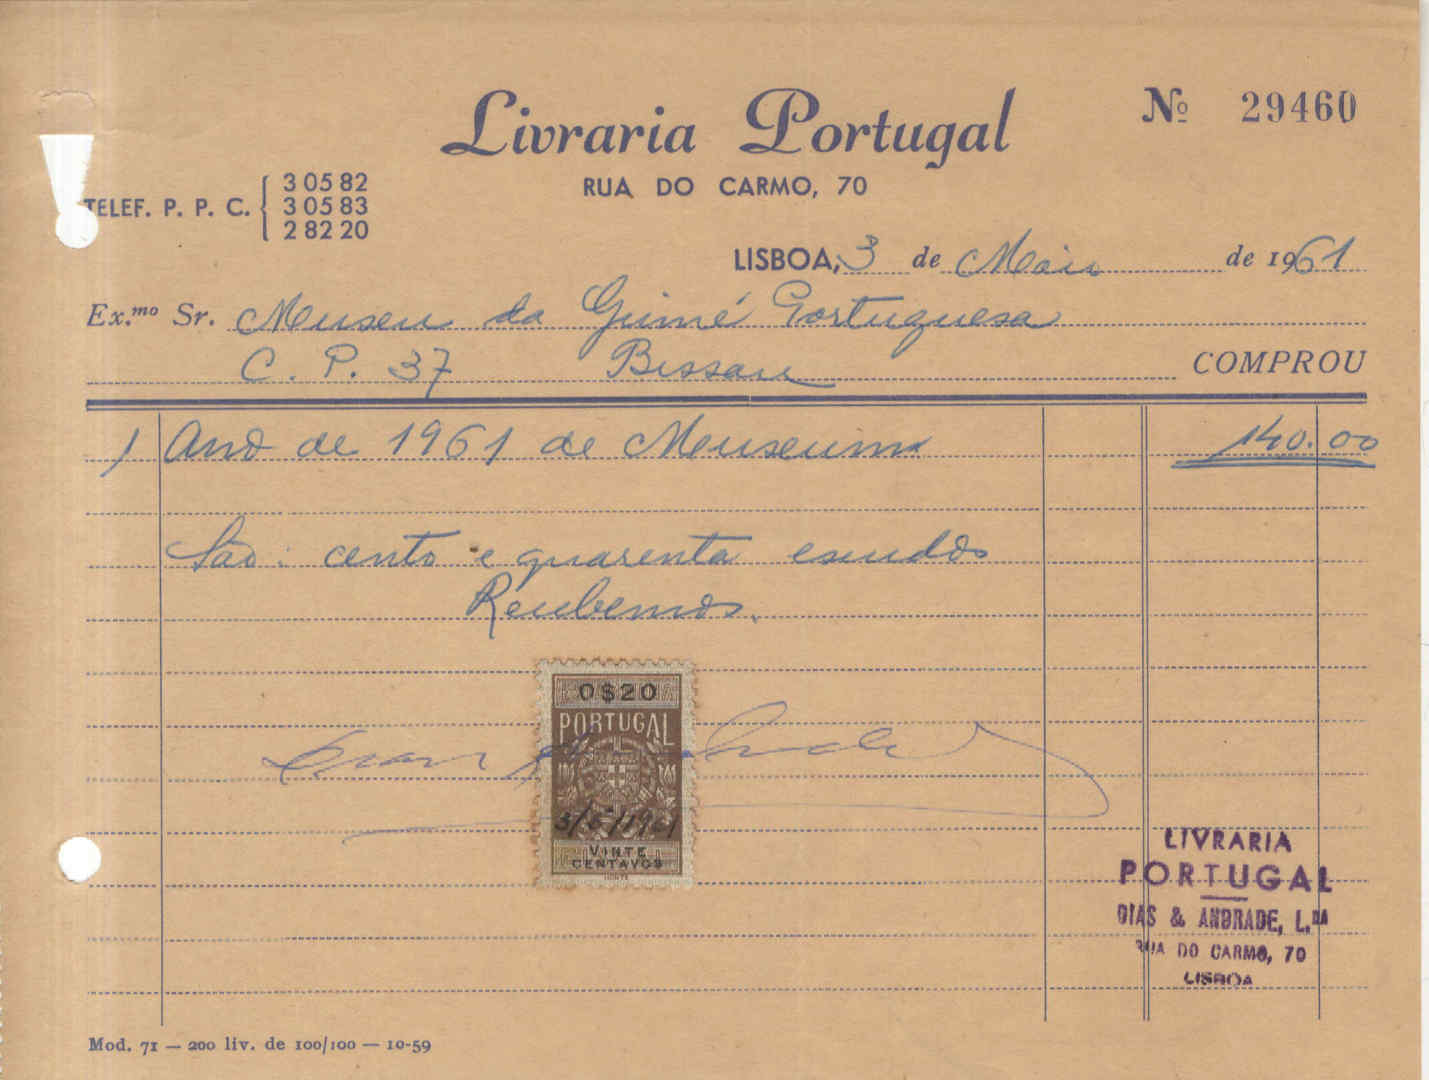 Livraria Portugal
Nº 29460
RUA DO CARMO, 70
TELEF. P. P. C. { 3 05 82
3 05 83
2 82 20
LISBOA, 3 de Maio de 1961
Ex.mo Sr. Museu da Guiné Portuguesa
C. P. 37 Bissau COMPROU
1 Ano de 1961 de Museum 140.00
São: cento e quarenta escudos
Recebemos.
0$20
PORTUGAL
3/5/1961
VINTE
CENTAVOS
LIVRARIA
PORTUGAL
DIAS & ANDRADE, L.DA
RUA DO CARMO, 70
LISBOA
Mod. 71 — 200 liv. de 100/100 — 10-59